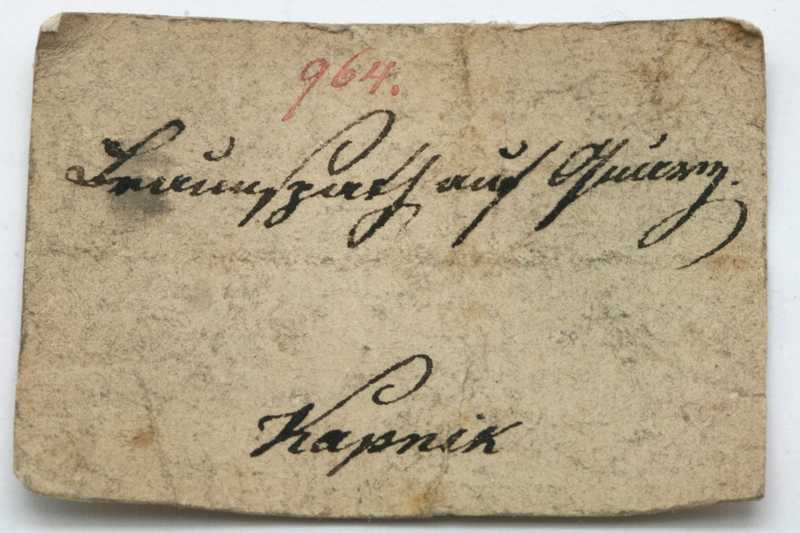 964.
Braunspath auf Quarz.
Kapnik